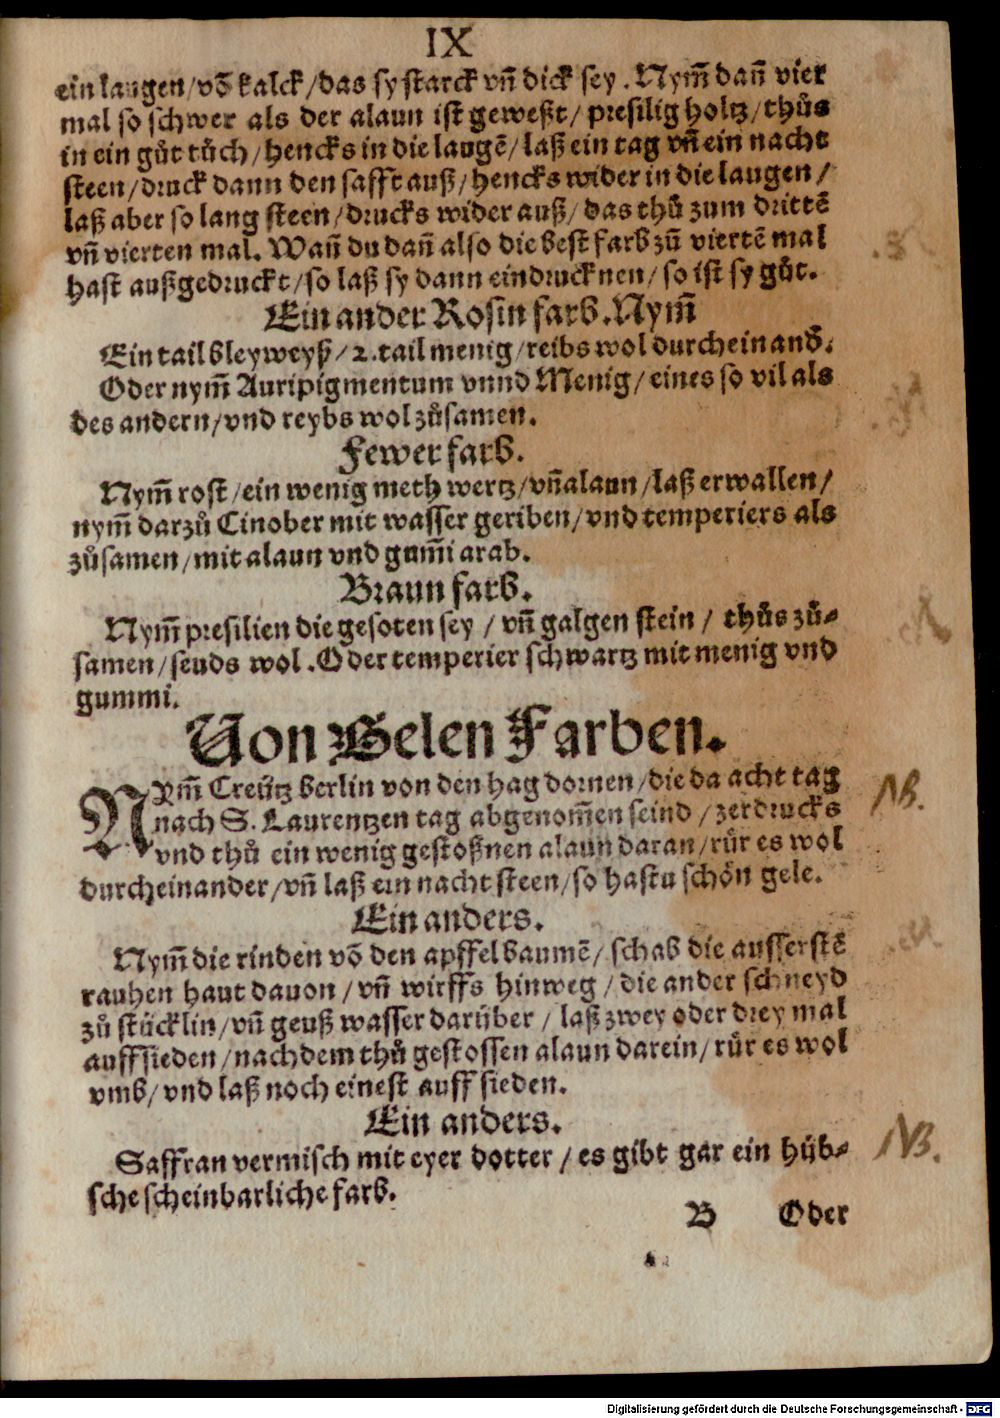 IX
ein laugen/võ kalck/das sy starck vñ dick sey. Nym̃ dañ vier
mal so schwer als der alaun ist geweßt/ presilig holtz/thůs
in ein gůt tůch/hencks in die laugẽ/laß ein tag vñ ein nacht
steen/druck dann den safft auß/hencks wider in die laugen/
laß aber so lang steen/drucks wider auß/das thů zum drittẽ
vñ vierten mal. Wañ du dañ also die best farb zů viertẽ mal
hast außgedruckt/so laß sy dann eindrucknen/so ist sy gůt.
Ein ander Rosin farb. Nym̃
Ein tail bleyweyß/2.tail menig/reibs wol durcheinand̃.
Oder nym̃ Auripigmentum vnnd Menig/eines so vil als
des andern/vnd reybs wol zůsamen.
Fewer farb.
Nym̃ rost/ein wenig meth wertz/vñ alaun/laß erwallen/
nym̃ darzů Cinober mit wasser geriben/vnd temperiers als
zůsamen/mit alaun vnd gum̃i arab.
Braun farb.
Nym̃ presilien die gesoten sey / vñ galgen stein / thůs zů-
samen/seuds wol. Oder temperier schwartz mit menig vnd
gummi.
Von Gelen Farben.
NYm̃ Creütz berlin von den hag dornen/die da acht tag
nach S. Laurentzen tag abgenom̃en seind / zerdrucks
vnd thů ein wenig gestoßnen alaun daran/růr es wol
durcheinander/vñ laß ein nacht steen/so hastu schön gele.
Ein anders.
Nym̃ die rinden võ den apffelbaumẽ/ schab die ausserstẽ
rauhen haut dauon/vñ wirffs hinweg / die ander schneyd
zů stücklin/vñ geuß wasser darüber / laß zwey oder drey mal
auffsieden/nachdem thů gestossen alaun darein/růr es wol
vmb/vnd laß noch einest auff sieden.
Ein anders.
Saffran vermisch mit eyer dotter/es gibt gar ein hüb-
sche scheinbarliche farb.
B Oder
NB.
NB.
Digitalisierung gefördert durch die Deutsche Forschungsgemeinschaft - DFG